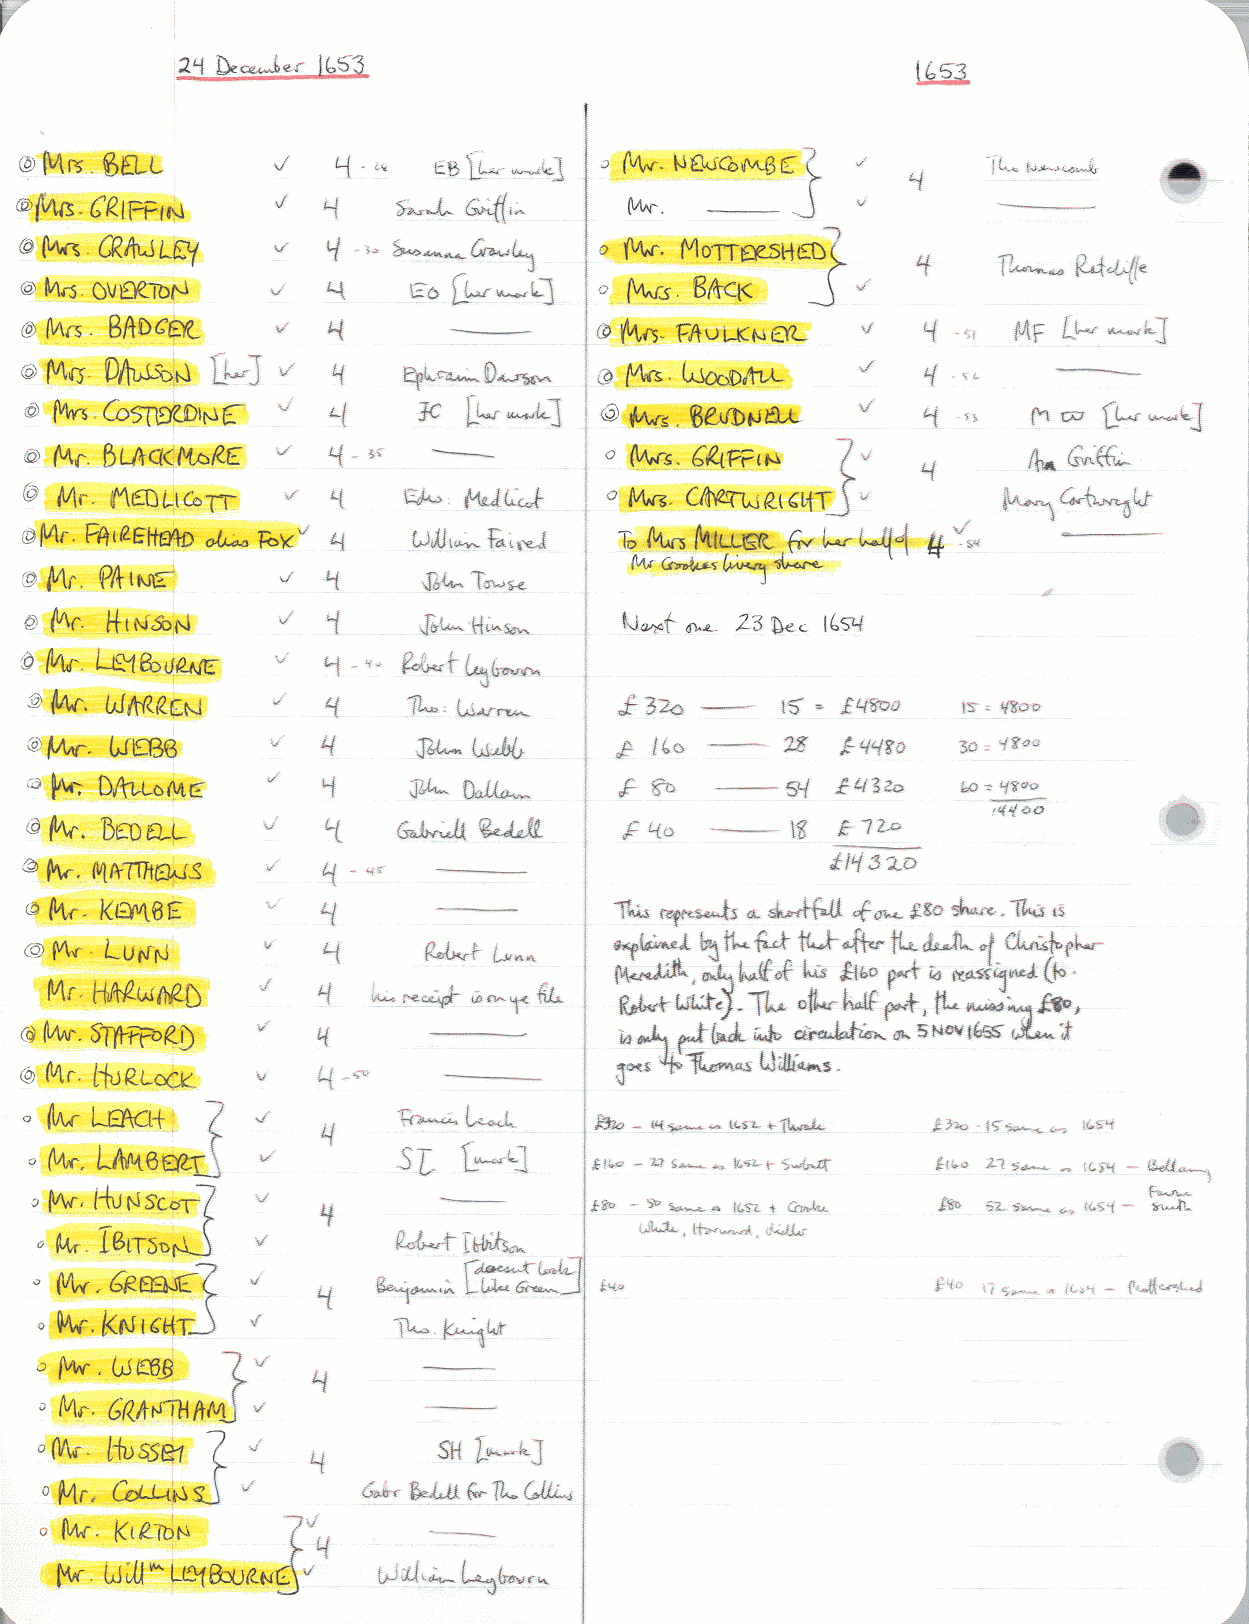 24 December 1653
Mrs. BELL ✓ 4 - 28 EB [her mark]
Mrs. GRIFFIN ✓ 4 Sarah Griffin
Mrs. CRAWLEY ✓ 4 - 30 Susanna Crawley
Mrs. OVERTON ✓ 4 EO [her mark]
Mrs. BADGER ✓ 4 ——
Mrs. DAWSON [her] ✓ 4 Ephraim Dawson
Mrs. COSTERDINE ✓ 4 JC [her mark]
Mr. BLACKMORE ✓ 4 - 35 ——
Mr. MEDLICOTT ✓ 4 Edw: Medlicot
Mr. FAIREHEAD alias FOX ✓ 4 William Faired
Mr. PAINE ✓ 4 John Towse
Mr. HINSON ✓ 4 John Hinson
Mr. LEYBOURNE ✓ 4 - 40 Robert Leybourn
Mr. WARREN ✓ 4 Tho: Warren
Mr. WEBB ✓ 4 John Webb
Mr. DALLOME ✓ 4 John Dallam
Mr. BEDELL ✓ 4 Gabriell Bedell
Mr. MATTHEWS ✓ 4 - 45 ——
Mr. KEMBE ✓ 4 ——
Mr. LUNN ✓ 4 Robert Lunn
Mr. HARWARD ✓ 4 his receipt is on ye file
Mr. STAFFORD ✓ 4 ——
Mr. HURLOCK ✓ 4 - 50 ——
Mr LEACH ✓ 4 Francis Leach
Mr. LAMBERT ✓ [mark]
Mr. HUNSCOT ✓ 4 ——
Mr. IBITSON ✓ Robert Ibbitson
Mr. GREENE ✓ 4 Benjamin [doesn't look like Green]
Mr. KNIGHT ✓ Tho. Knight
Mr. WEBB ✓ 4 ——
Mr. GRANTHAM ✓ ——
Mr. HUSSEY ✓ 4 SH [mark]
Mr. COLLINS ✓ Gabr Bedell for Tho Collins
Mr. KIRTON ✓ 4 ——
Mr. Willm LEYBOURNE ✓ William Leybourn
1653
Mr. NEWCOMBE ✓ 4 Tho Newcomb
Mr. —— ✓ ——
Mr. MOTTERSHED 4 Thomas Ratcliffe
Mrs. BACK ✓
Mrs. FAULKNER ✓ 4 - 51 MF [her mark]
Mrs. WOODALL ✓ 4 - 52 ——
Mrs. BRUDNELL ✓ 4 - 53 M [her mark]
Mrs. GRIFFIN ✓ 4 An Griffin
Mrs. CARTWRIGHT ✓ Mary Cartwright
To Mrs MILLER for her half of 4 ✓ - 54 ——
Mr Crookes livery share
Next one 23 Dec 1654
£320 —— 15 = £4800 15 = 4800
£ 160 —— 28 £4480 30 = 4800
£ 80 —— 54 £4320 60 = 4800
14400
£ 40 —— 18 £ 720
£14320
This represents a shortfall of one £80 share. This is
explained by the fact that after the death of Christopher
Meredith, only half of his £160 part is reassigned (to
Robert White). The other half part, the missing £80,
is only put back into circulation on 5 NOV 1655 when it
goes to Thomas Williams.
£320 - 14 same as 1652 + Thrale £320 - 15 same as 1654
£160 - 27 same as 1652 + £160 27 same as 1654 - Bellamy
£80 - 50 same as 1652 + Crooke £80 52 same as 1654 - Smith
White, Harward, Miller
£40 £40 17 same as 1654 - Mottershed